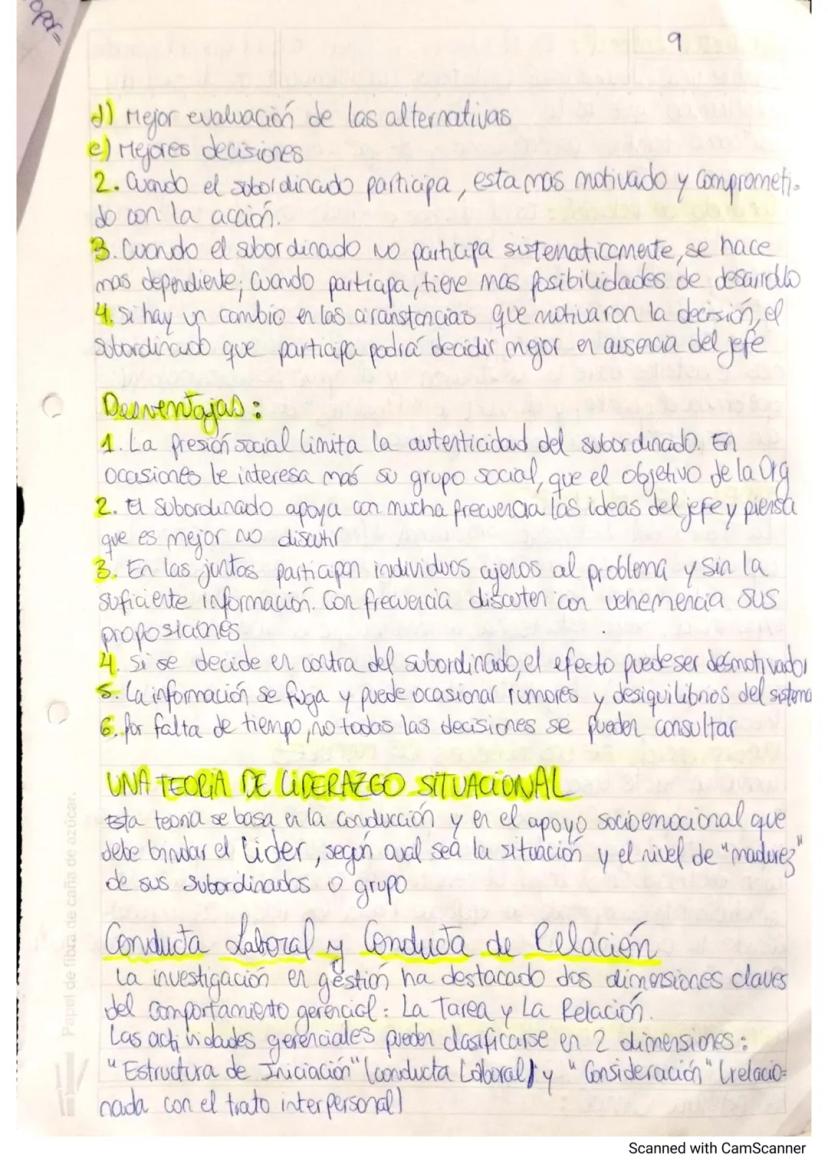 9
d) Mejor evaluación de las alternativas
e) Mejores decisiones
2. Cuando el subordinado participa, esta mas motivado y comprometi-
do con la acción.
3. Cuando el subordinado no participa sistematicamente, se hace
mas dependiente; Cuando participa, tiene mas posibilidades de desarrollo
4. Si hay un cambio en las circunstancias que motivaron la decisión, el
subordinado que participa podrá decidir mejor en ausencia del jefe
Desventajas:
1. La presión social limita la autenticidad del subordinado. En
ocasiones le interesa mas su grupo social, que el objetivo de la Org
2. El subordinado apoya con mucha frecuencia las ideas del jefe y piensa
que es mejor no discutir
3. En las juntas participan individuos ajenos al problema y sin la
suficiente información. Con frecuencia discuten con vehemencia sus
proposiciones
4. Si se decide en contra del subordinado, el efecto puede ser desmotivador
5. La información se fuga y puede ocasionar rumores y desiquilibrios del sistema
6. por falta de tiempo, no todas las decisiones se pueden consultar
UNA TEORIA DE LIDERAZGO SITUACIONAL
Esta teoria se basa en la conducción y en el apoyo socioemocional que
debe brindar el Lider, según cual sea la situación y el nivel de "madurez"
de sus subordinados o grupo
Conducta Laboral y Conducta de Relación
La investigación en gestión ha destacado dos dimensiones claves
del comportamiento gerencial: La Tarea y La Relación.
Las actividades gerenciales pueden clasificarse en 2 dimensiones:
"Estructura de Iniciación" (conducta Laboral) y "Consideración" (relacio-
nada con el trato interpersonal)
Papel de fibra de caña de azúcar.
Scanned with CamScanner